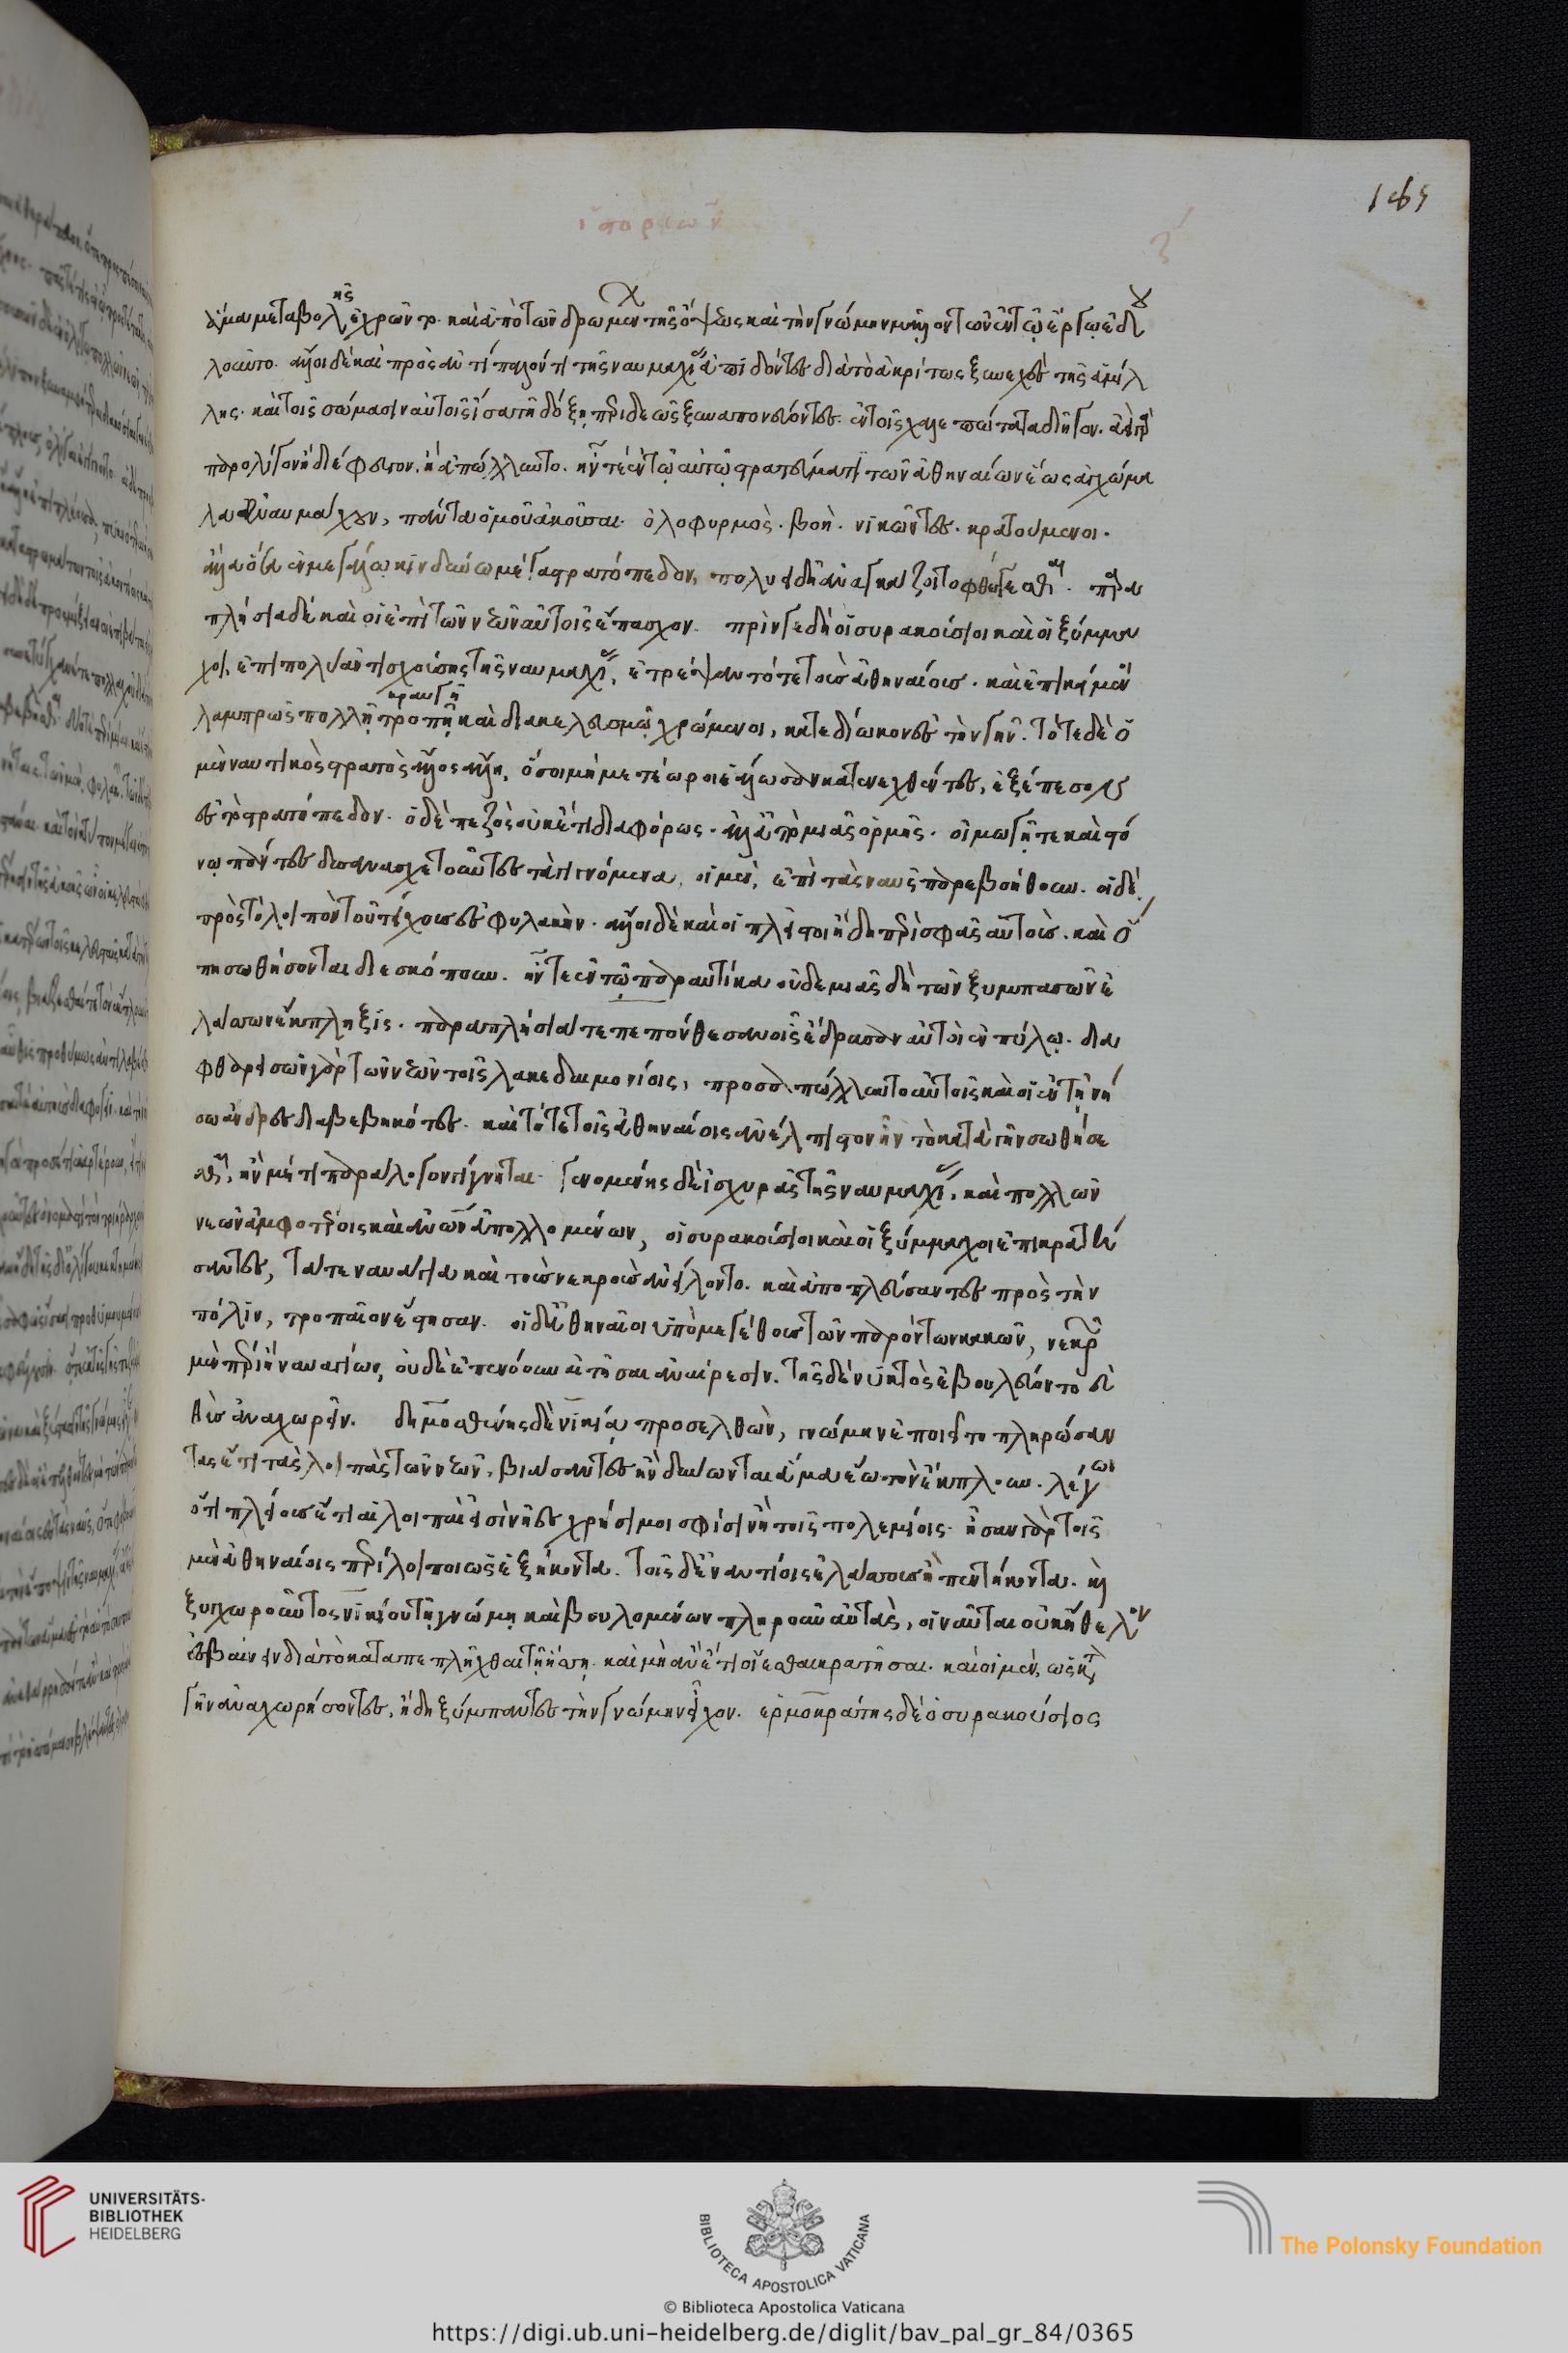 ἱστοριῶν
ζ´
165
ἅμα μεταβολῆς ἐχρῶντο. καὶ ἀπὸ τῶν δρωμένων τῆς ὄψεως καὶ τὴν γνώμην μᾶλλον τῶν ἐν τῷ ἔργῳ ἐδου
λοῦντο. ἄλλοι δὲ καὶ πρὸς ἀντίπαλόν τι τῆς ναυμαχίας ἀπιδόντες διὰ τὸ ἀκρίτως ξυνεχὲς τῆς ἁμίλ
λης. καὶ τοῖς σώμασιν αὐτοῖς ἴσα τῇ δόξῃ περιδεῶς ξυναπονεύοντες. ἐν τοῖς χαλεπώτατα διῆγον. ἀεὶ γὰρ
παρολίγον ἢ διέφευγον, ἢ ἀπώλλυντο. ἦν τέ ἐν τῷ αὐτῷ στρατεύματι τῶν ἀθηναίων ἕως ἀγχώμα
λα ἐναυμάχουν, πάντα ὁμοῦ ἀκοῦσαι. ὀλοφυρμὸς. βοὴ. νικῶντες. κρατούμενοι.
ἄλλα ὅσα ἐν μεγάλῳ κινδύνῳ μέγα στρατόπεδον, πολυειδῆ ἀναγκάζοιτο φθέγγεσθαι. παρα
πλήσια δὲ καὶ οἱ ἐπὶ τῶν νεῶν αὐτοῖς ἔπασχον. πρίν γε δὴ οἱ συρακούσιοι καὶ οἱ ξύμμα
χοι, ἐπιπολὺ ἀντισχούσης τῆς ναυμαχίας, ἔτρεψαν τότε τοὺς ἀθηναίους. καὶ ἐπικείμενοι
κραυγῇ
λαμπρῶς πολλῇ τροπῇ καὶ διακελευσμῷ χρώμενοι, κατεδίωκον ἐς τὴν γῆν. τότε δὲ ὁ
μὲν ναυτικὸς στρατὸς ἄλλος ἄλλῃ, ὅσοι μὴ μετέωροι ἑάλωσαν κατενεχθέντες, ἐξέπεσον
ἐς τὸ στρατόπεδον. ὁ δὲ πεζὸς οὐκέτι διαφόρως. ἀλλ' ἀπὸ μιᾶς ὁρμῆς. οἰμωγῇ τε καὶ στό
νῳ πάντες δυσανασχετοῦντες τὰ γιγνόμενα, οἱ μὲν, ἐπὶ τὰς ναῦς παρεβοήθουν. οἱ δὲ,
πρὸς τὸ λοιπὸν τοῦ τείχους ἐς φυλακήν. ἄλλοι δὲ καὶ οἱ πλεῖστοι ἤδη περὶ σφᾶς αὐτοὺς. καὶ ὅ
πῃ σωθήσονται διεσκόπουν. ἦν τε ἐν τῷ παραυτίκα οὐδεμιᾶς δὴ τῶν ξυμπασῶν ἐ
λάσσων ἔκπληξις. παραπλήσιά τε πεπόνθεσαν οἷς ἔδρασαν αὐτοὶ ἐν πύλῳ. δια
φθαρεισῶν γὰρ τῶν νεῶν τοῖς λακεδαιμονίοις, προσαπώλλυντο αὐτοῖς καὶ οἱ ἐν τῇ νή
σῳ ἄνδρες διαβεβηκότες. καὶ τότε τοῖς ἀθηναίοις ἀνέλπιστον ἦν τὸ κατὰ γῆν σωθήσε
σθαι, ἢν μή τι παράλογον γίγνηται. γενομένης δὲ ἰσχυρᾶς τῆς ναυμαχίας, καὶ πολλῶν
νεῶν ἀμφοτέροις καὶ ἀνθρώπων ἀπολλομένων, οἱ συρακούσιοι καὶ οἱ ξύμμαχοι ἐπικρατή
σαντες, τά τε ναυάγια καὶ τοὺς νεκροὺς ἀνείλοντο. καὶ ἀποπλεύσαντες πρὸς τὴν
πόλιν, τροπαῖον ἔστησαν. οἱ δ' ἀθηναῖοι ὑπὸ μεγέθους τῶν παρόντων κακῶν, νεκρῶν
μὲν πέρι ἢ ναυαγίων, οὐδὲ ἐπενόουν αἰτῆσαι ἀναίρεσιν. τῆς δὲ νυκτὸς ἐβουλεύοντο εὐ
θὺς ἀναχωρεῖν. δημοσθένης δὲ νικίᾳ προσελθὼν, γνώμην ἐποιεῖτο πληρώσαν
τας ἔτι τὰς λοιπὰς τῶν νεῶν, βιάσαντες ἢν δύνωνται ἅμα ἕῳ τὸν ἔκπλουν. λέγων
ὅτι πλείους ἔτι αἱ λοιπαί εἰσι νῆες χρήσιμοι σφίσιν ἢ τοῖς πολεμίοις. ἦσαν γὰρ τοῖς
μὲν ἀθηναίοις περίλοιποι ὡς ἑξήκοντα. τοῖς δὲ ἐναντίοις ἐλάσσους ἢ πεντήκοντα. καὶ
ξυγχωροῦντος νικίου τῇ γνώμῃ καὶ βουλομένων πληροῦν αὐτὰς, οἱ ναῦται οὐκ ἤθελον
ἐσβαίνειν διὰ τὸ καταπεπλῆχθαι τῇ ἥσσῃ. καὶ μὴ ἂν ἔτι οἴεσθαι κρατῆσαι. καὶ οἱ μὲν, ὡς κατὰ
γῆν ἀναχωρήσοντες, ἤδη ξύμπαντες τὴν γνώμην εἶχον. ἑρμοκράτης δὲ ὁ συρακούσιος
UNIVERSITÄTS-
BIBLIOTHEK
HEIDELBERG
BIBLIOTECA APOSTOLICA VATICANA
The Polonsky Foundation
© Biblioteca Apostolica Vaticana
https://digi.ub.uni-heidelberg.de/diglit/bav_pal_gr_84/0365